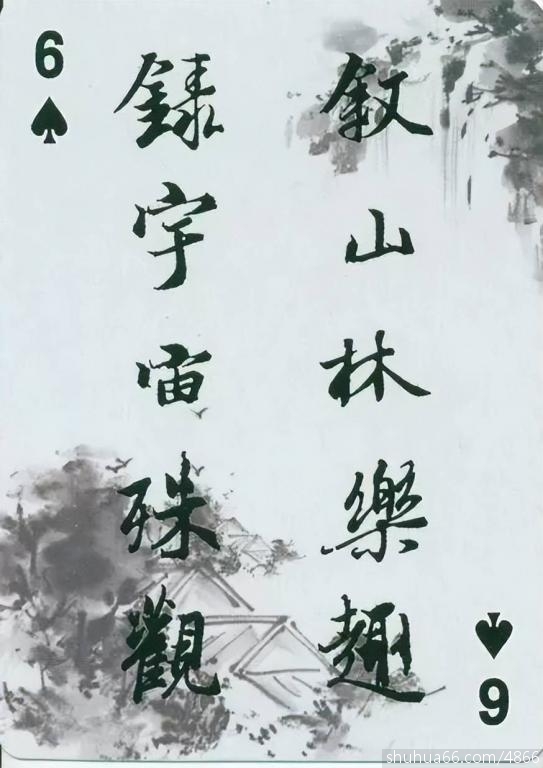 6
敘山林樂趣
錄宇宙殊觀
6
shuhua66.com/4866